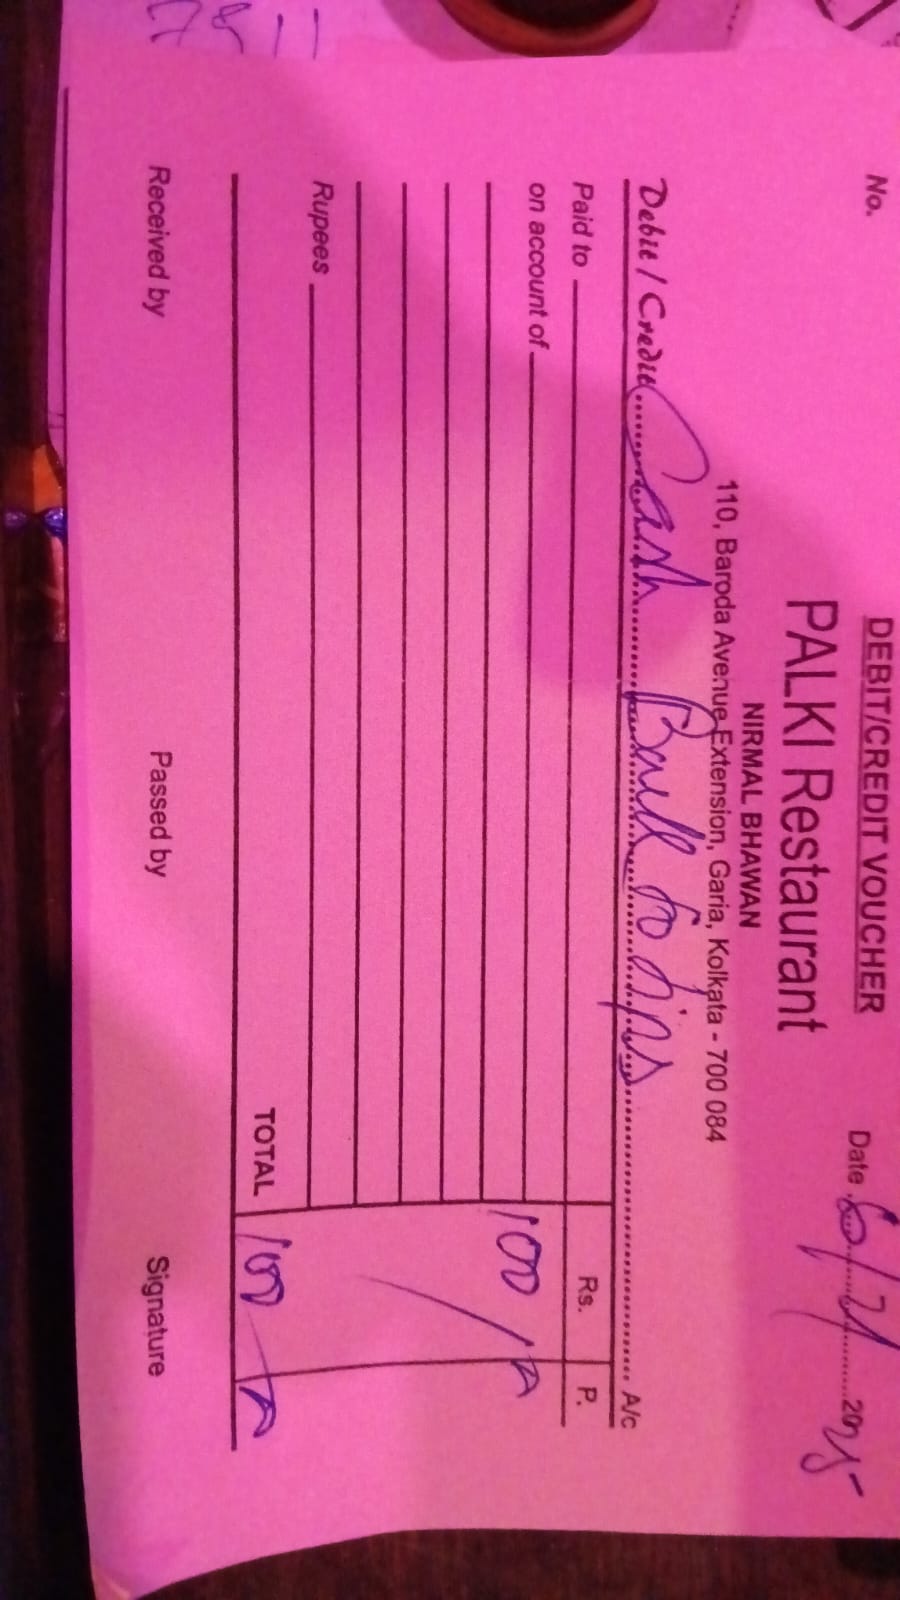 DEBIT/CREDIT VOUCHER
No.
PALKI Restaurant
Date 6/7/2025
NIRMAL BHAWAN
110, Baroda Avenue Extension, Garia, Kolkata - 700 084
Debit / Credit Cash Back to A/c
Paid to Rs. P.
on account of
100 /
Rupees
TOTAL 100
Received by Passed by Signature